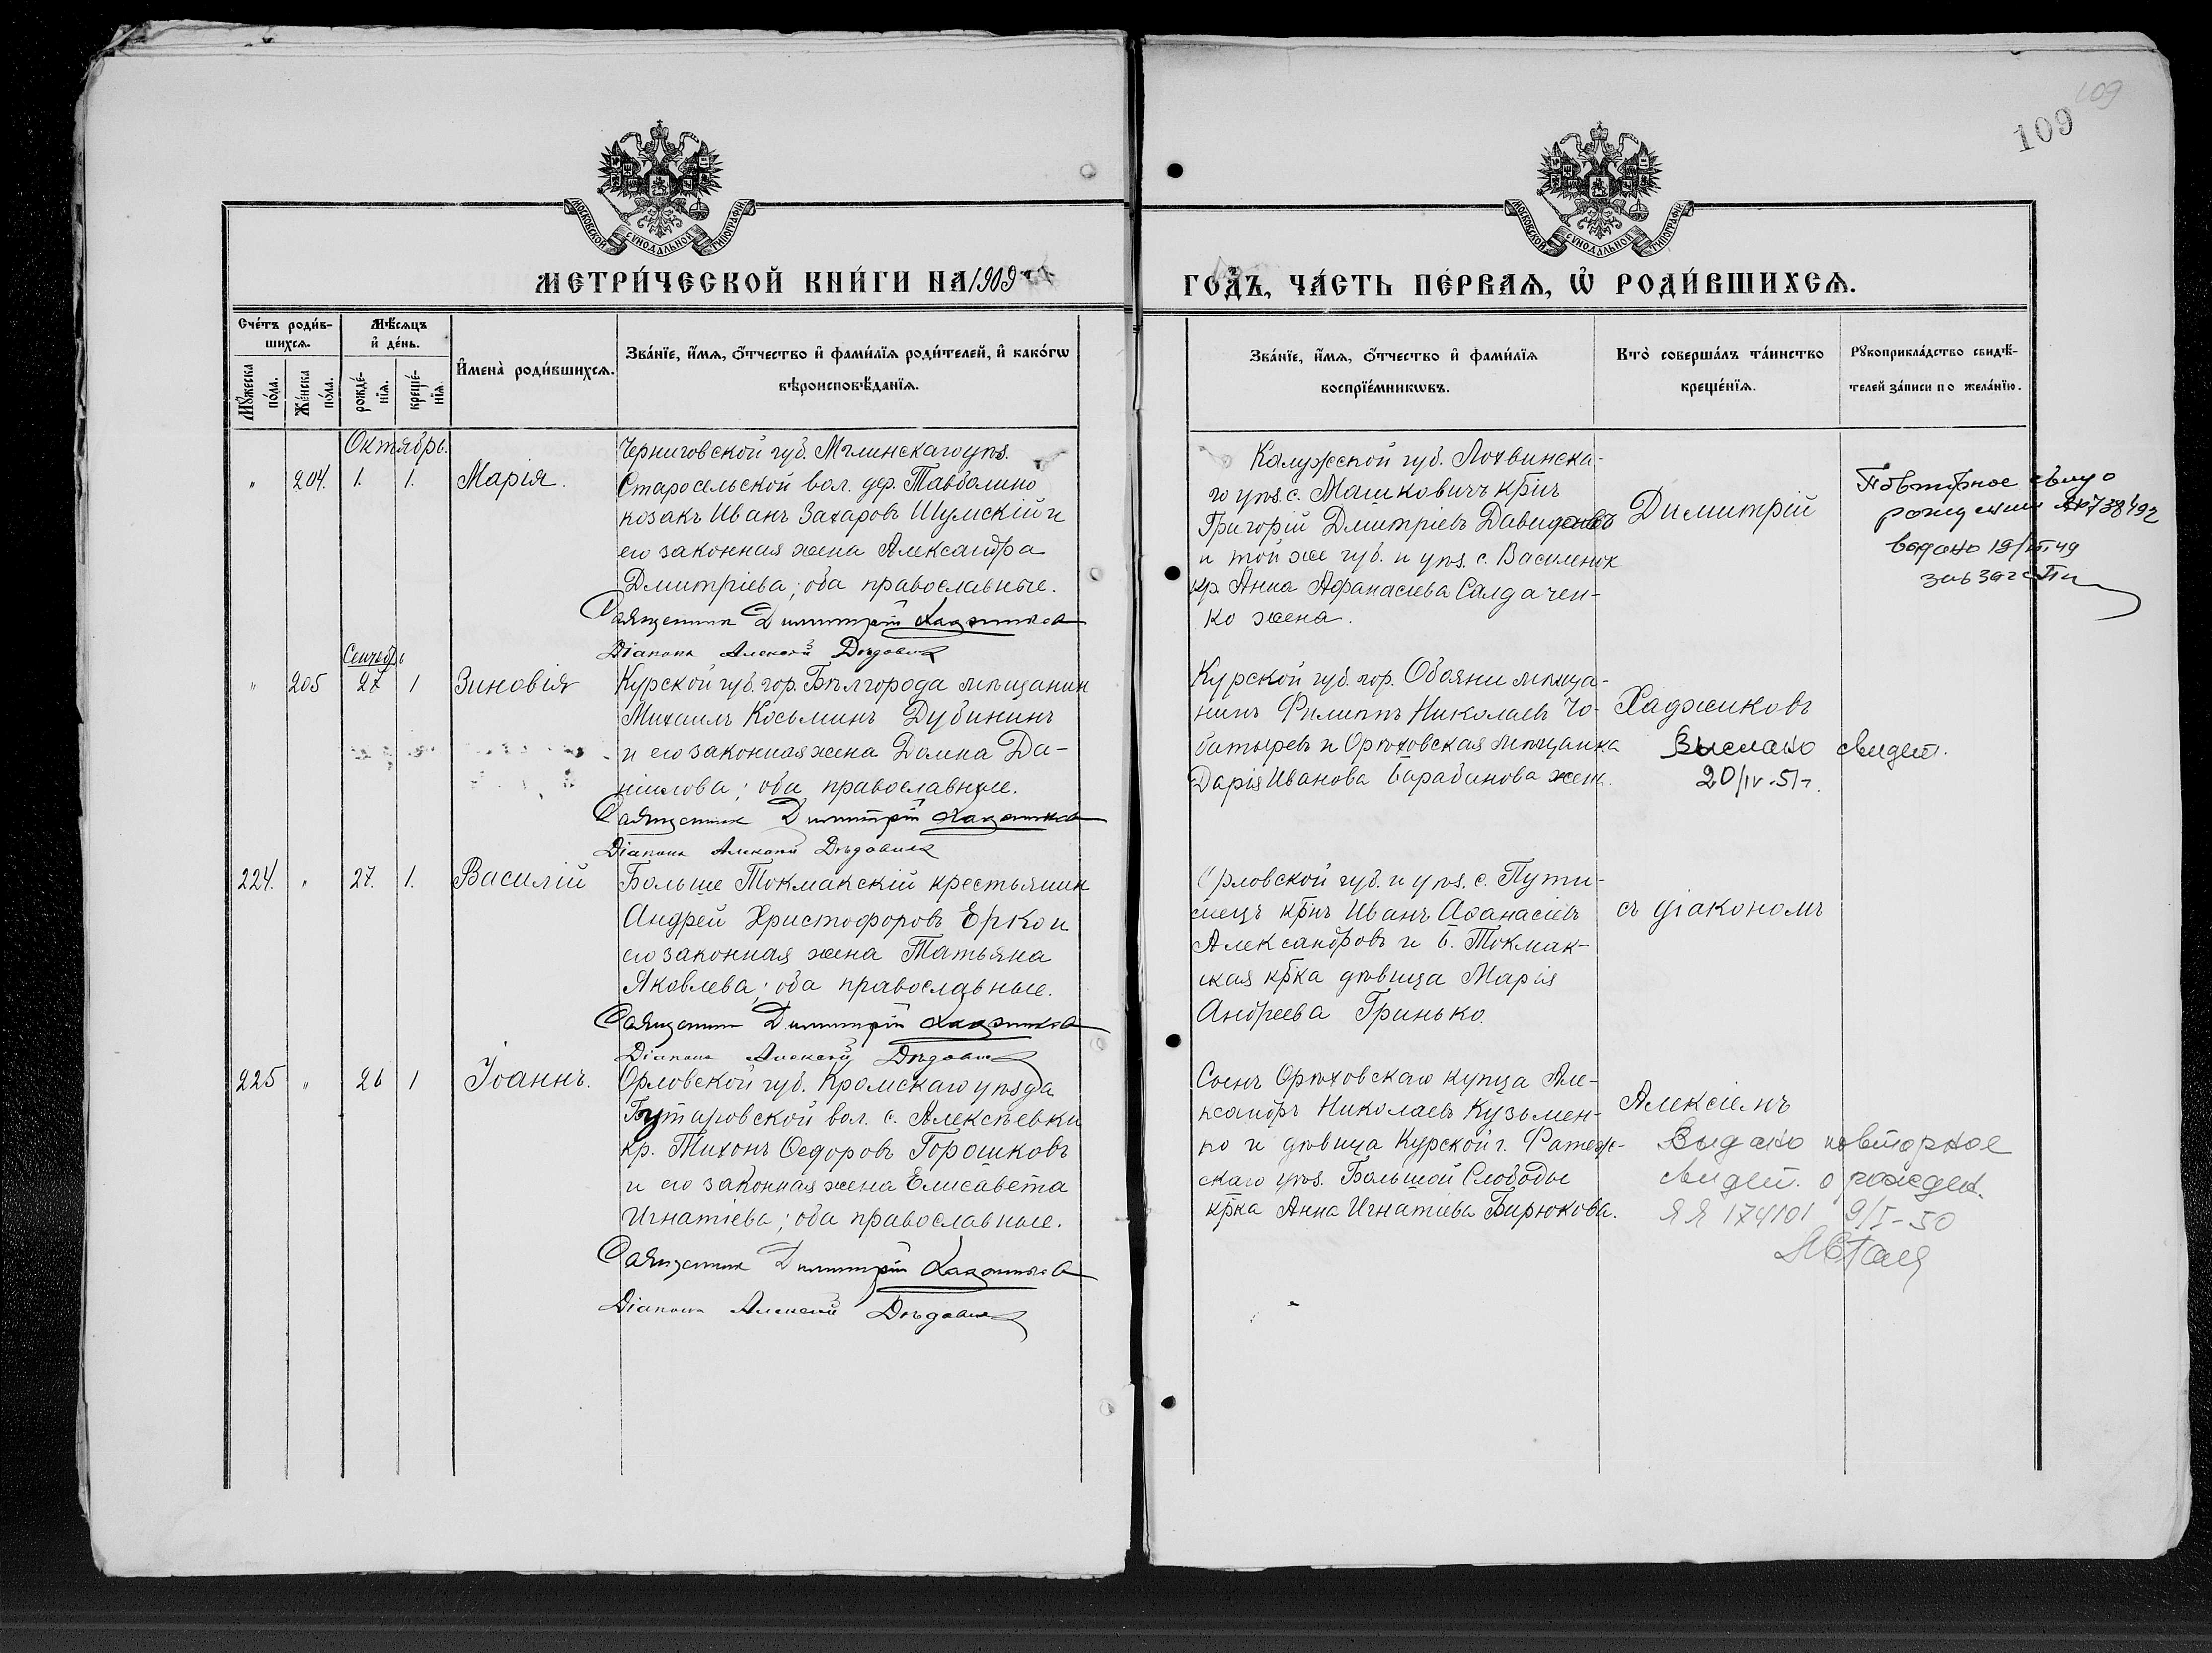 109
109
МОСКОВСКОЙ СѴНОДАЛЬНОЙ ТИПОГРАФІИ
МОСКОВСКОЙ СѴНОДАЛЬНОЙ ТИПОГРАФІИ
МЕТРИ́ЧЕСКОЙ КНИ́ГИ НА 1909
ГО́ДЪ, ЧА́СТЬ ПЕ́РВАѦ, Ѽ РОДИ́ВШИХСѦ.
Сче́тъ роди́в-
шихсѧ.
Мꙋ́жеска по́ла.
Же́нска по́ла.
Мѣ́сѧцъ и҆ де́нь.
рожде́-нїѧ.
креще́-нїѧ.
И҆мена̀ роди́вшихсѧ.
Зва́нїе, и҆́мѧ, ѻ҆́тчество и҆ фами́лїѧ роди́телей, и҆ како́гѡ
вѣроисповѣ́данїѧ.
Зва́нїе, и҆́мѧ, ѻ҆́тчество и҆ фами́лїѧ
воспрїе́мникѡвъ.
Кто̀ соверша́лъ та́инство
креще́нїѧ.
Рꙋкоприкла́дство свидѣ́-
телей за́писи по жела́нїю.
Октябрь.
" 204. 1. 1. Марія.
Черниговской губ. Мглинскаго уѣз.
Старосельской вол. дер. Тавболино
козакъ Иванъ Захаровъ Шумскій и
его законная жена Александра
Дмитріева; оба православные.
Священник Димитрій Хаджиковъ
Діаконъ Алексѣй Дѣдович
Калужской губ. Лихвинска-
го уѣз. с. Машковичъ крнъ
Григорій Дмитріевъ Давиденковъ
и той же губ. и уѣз. с.
кр. Анна Афанасіева Салдачен-
ко жена.
Димитрій
Повторное свид о
рождении № 738492
выдано 19/
Сентябрь
" 205 27 1 Зиновія
Курской губ. гор. Бѣлгорода мѣщанин
Михаилъ Косьминъ Дубининъ
и его законная жена Домна Да-
ніилова; оба православные.
Священник Димитрій Хаджиковъ
Діаконъ Алексѣй Дѣдович
Курской губ. гор. Обояни мѣща-
нинъ Филиппъ Николаевъ Чо-
батыревъ и Орѣховская мѣщанка
Дарія Иванова Барабанова жен.
Хаджиковъ
Выслано свидет.
20/IV-51 г.
224. " 27. 1. Василій
Больше Токмакскій крестьянин
Андрей Христофоровъ Ерко и
его законная жена Татьяна
Яковлева; оба православные.
Священник Димитрій Хаджиковъ
Діаконъ Алексѣй Дѣдович
Орловской губ. и уѣз. с. Пути-
мецъ крнъ Иванъ Аѳанасіевъ
Александровъ и Б. Токмак-
ская крка дѣвица Марія
Андреева Гринько.
съ діакономъ
225 " 26 1 Іоаннъ.
Орловской губ. Кромскаго уѣзда
вол. с. Алексѣевки
кр. Тихонъ Ѳедоровъ Горошковъ
и его законная жена Елисавета
Игнатіева; оба православные.
Священник Димитрій Хаджиковъ
Діаконъ Алексѣй Дѣдович
Сынъ Орѣховскаго купца Але-
ксандръ Николаевъ Кузьмен-
ко и дѣвица Курской г. Фатеж-
скаго уѣз. Большой Слободы
крка Анна Игнатіева Бирюкова.
Алексіемъ
Выдано повторное
свидет. о рожден.
ЯЯ 174101 9/I-50